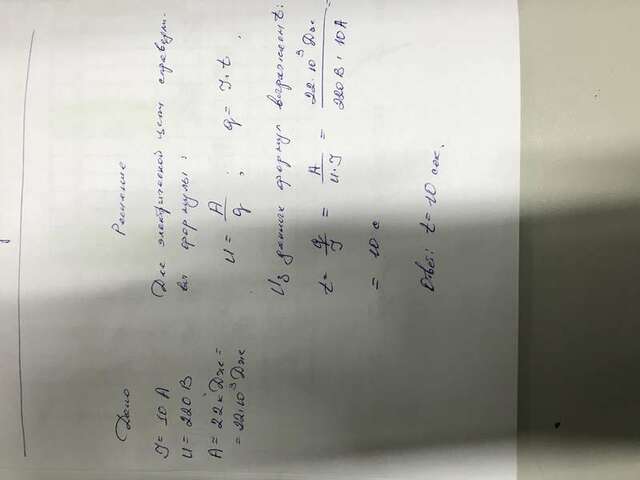 Дано
Решение
I = 10 А
U = 220 В
A = 22 кДж =
= 22·10³ Дж
Для электрической цепи справедли-
вы формулы:
U = A/q ; q = I·t.
Из данных формул выражаем t:
t = q/I = A/(U·I) = 22·10³ Дж/(220 В · 10 А) =
= 10 с
Ответ: t = 10 сек.